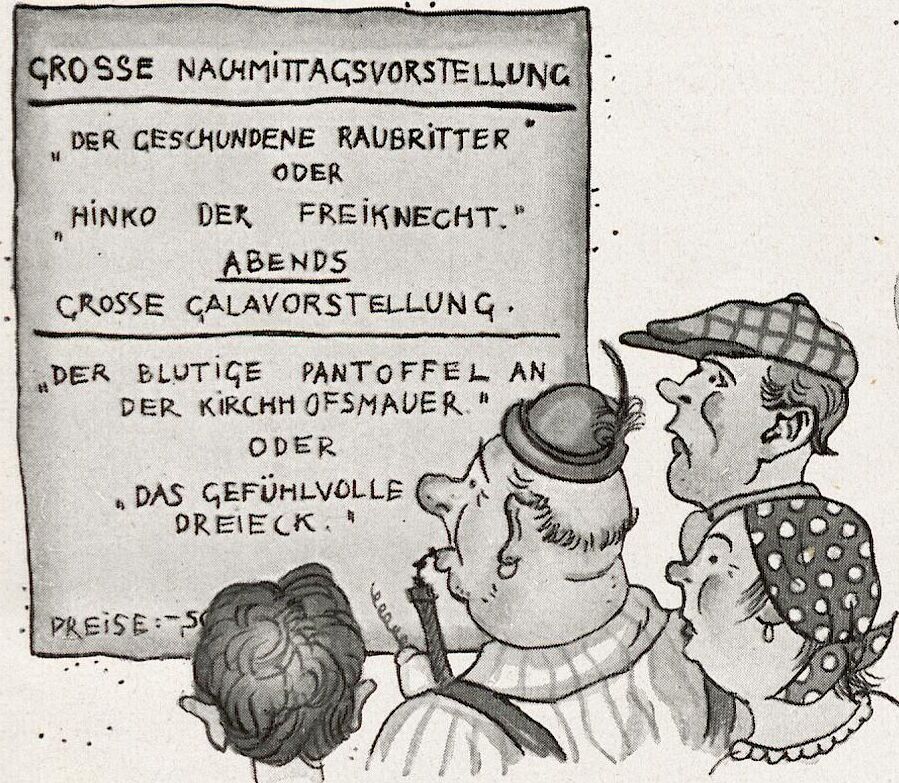 GROSSE NACHMITTAGSVORSTELLUNG
„DER GESCHUNDENE RAUBRITTER"
ODER
„HINKO DER FREIKNECHT."
ABENDS
GROSSE GALAVORSTELLUNG.
„DER BLUTIGE PANTOFFEL AN
DER KIRCHHOFSMAUER."
ODER
„DAS GEFÜHLVOLLE
DREIECK."
PREISE:-,50